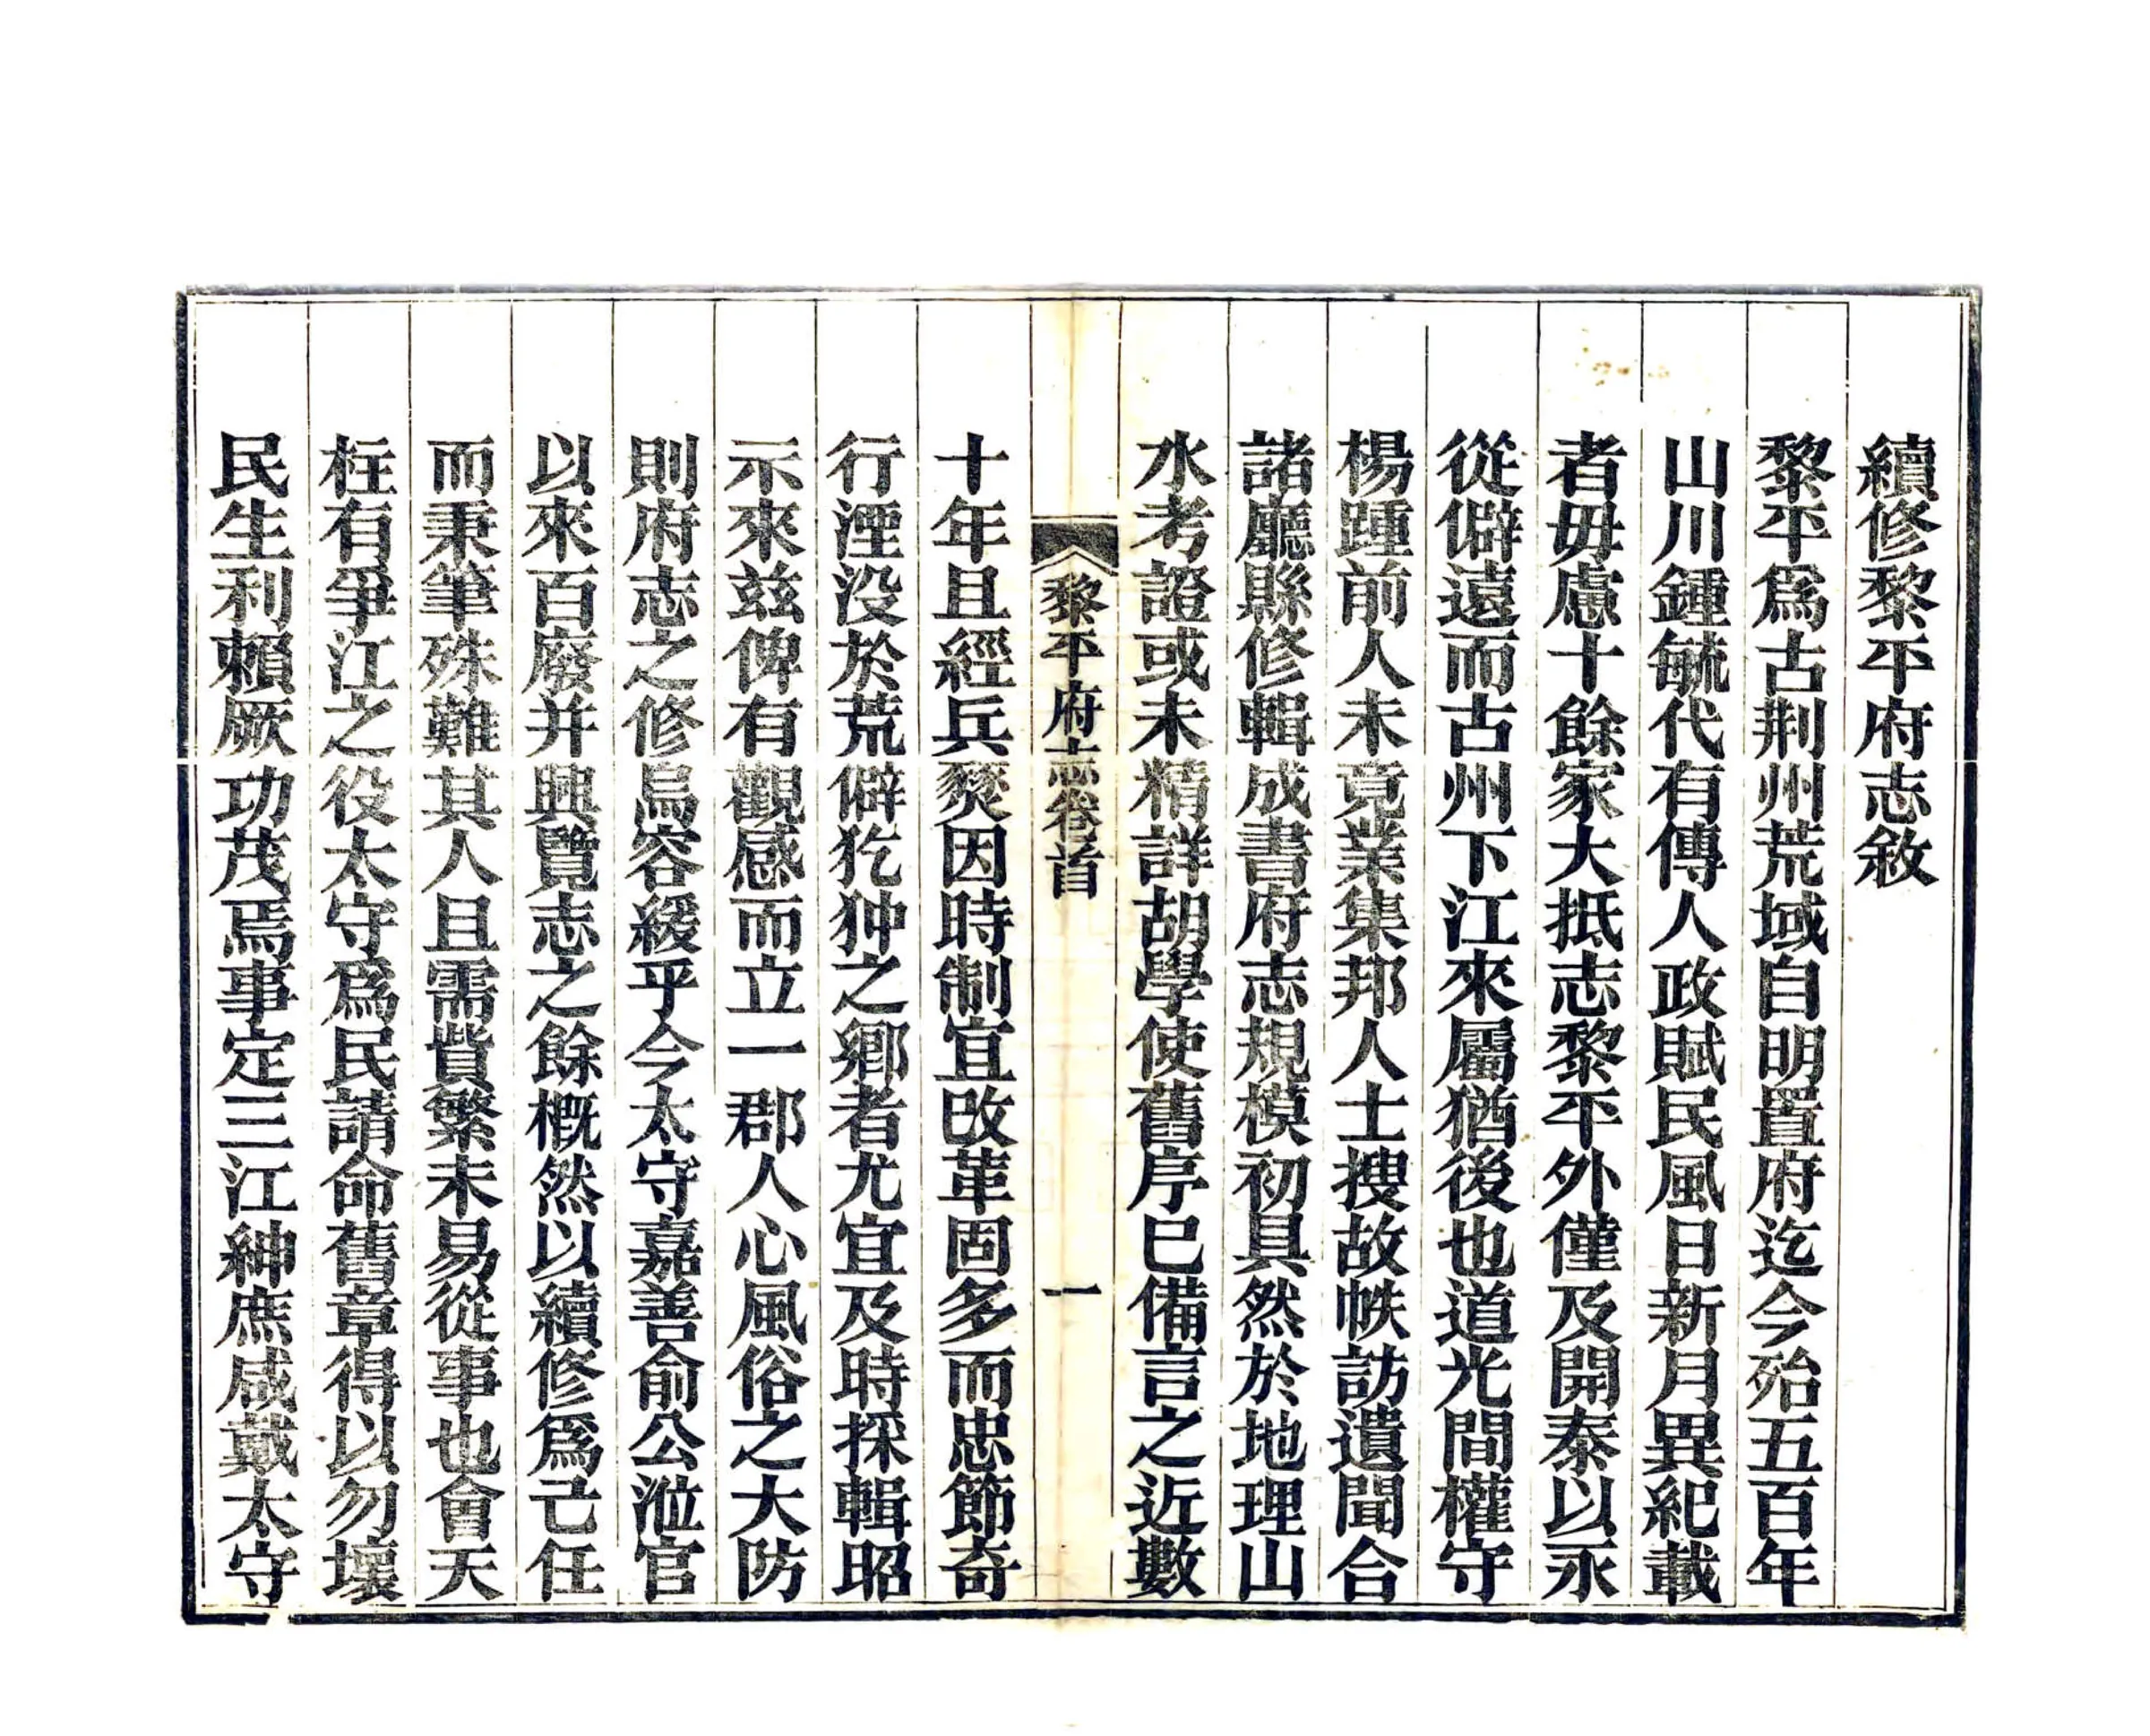 續修黎平府志敘
黎平爲古荆州荒域自明置府迄今殆五百年
山川鍾毓代有傳人政賦民風日新月異紀載
者毋慮十餘家大抵志黎平外僅及開泰以永
從僻遠而古州下江來屬猶後也道光間權守
楊踵前人未竟業集邦人士搜故帙訪遺聞合
諸廳縣修輯成書府志規模初具然於地理山
水考證或未精詳胡學使舊序已備言之近數
黎平府志卷首
一
十年且經兵燹因時制宜改革固多而忠節奇
行湮没於荒僻犵狆之鄉者尤宜及時採輯昭
示來兹俾有觀感而立一郡人心風俗之大防
則府志之修烏容緩乎今太守嘉善俞公涖官
以來百廢并興覽志之餘概然以續修爲己任
而秉筆殊難其人且需貲繁未易從事也會天
柱有爭江之役太守爲民請命舊章得以勿壞
民生利賴厥功茂焉事定三江紳庶咸戴太守